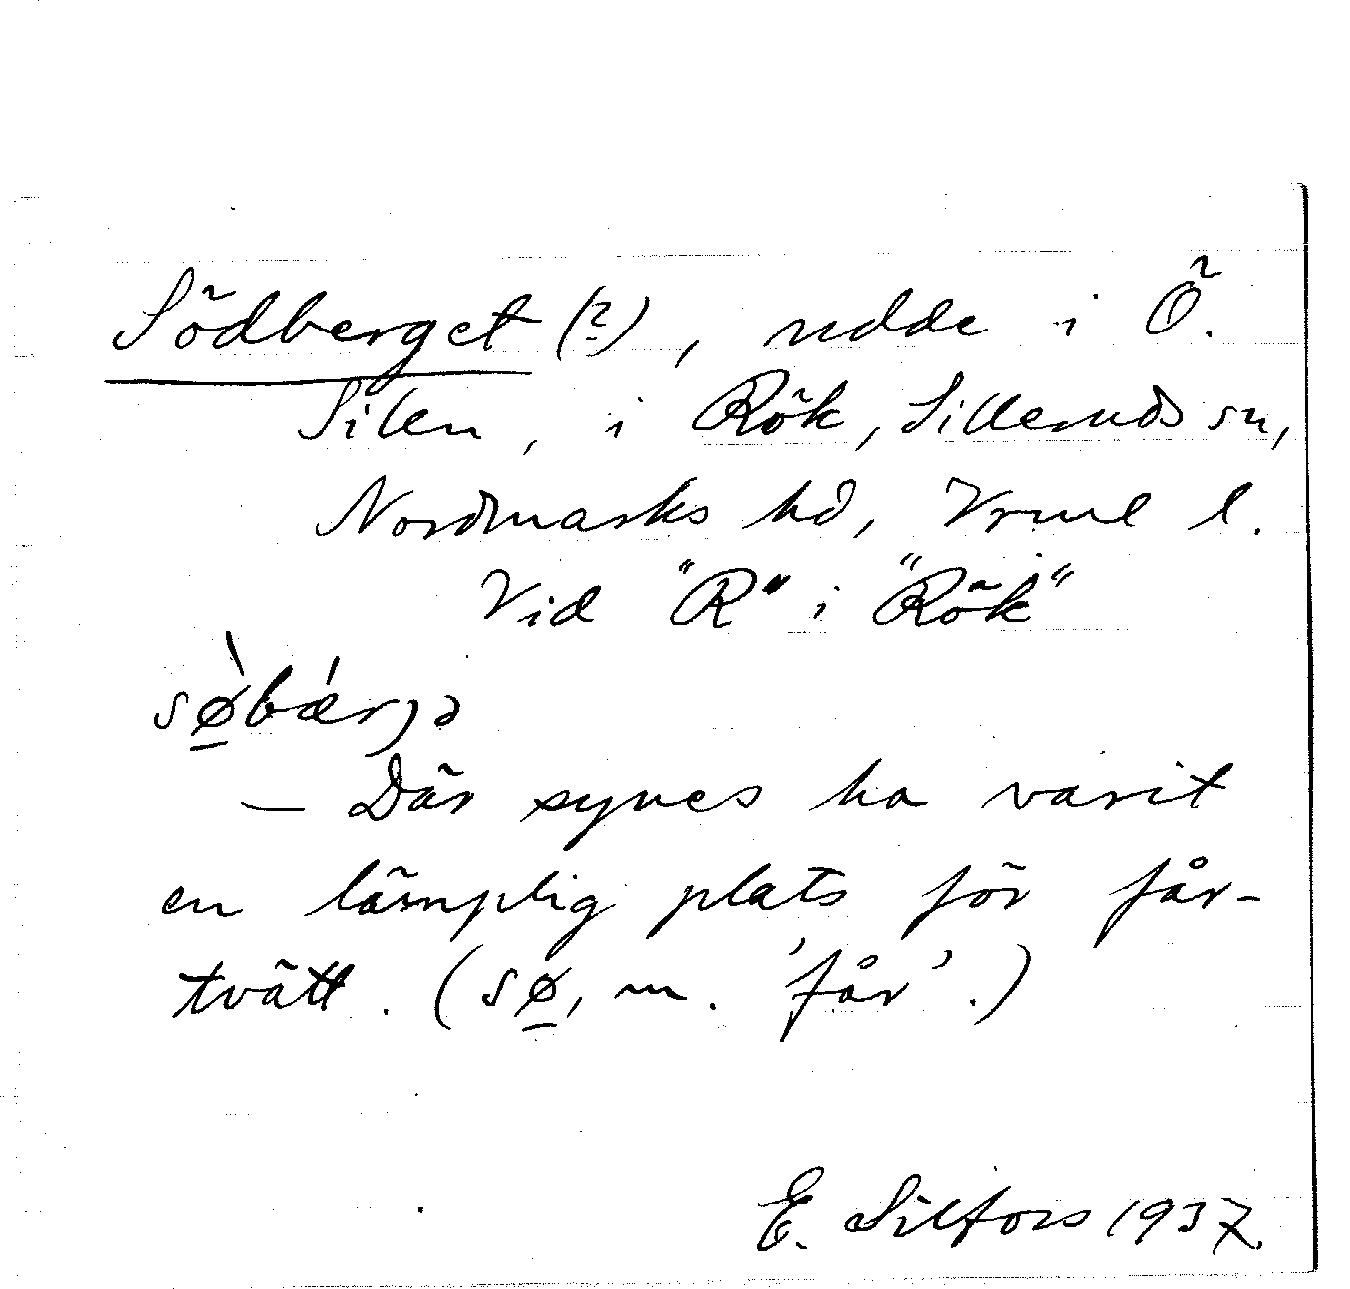 Södberget (?), udde i Ö.
Silen, i Rök, Silleruds sn,
Nordmarks hd, Vrml l.
Vid "R" i "Rök"
sø̲̀bǽrjə
— Där synes ha varit
en lämplig plats för får-
tvätt. (sø̲, m. 'får'.)
E. Silfors 1937.